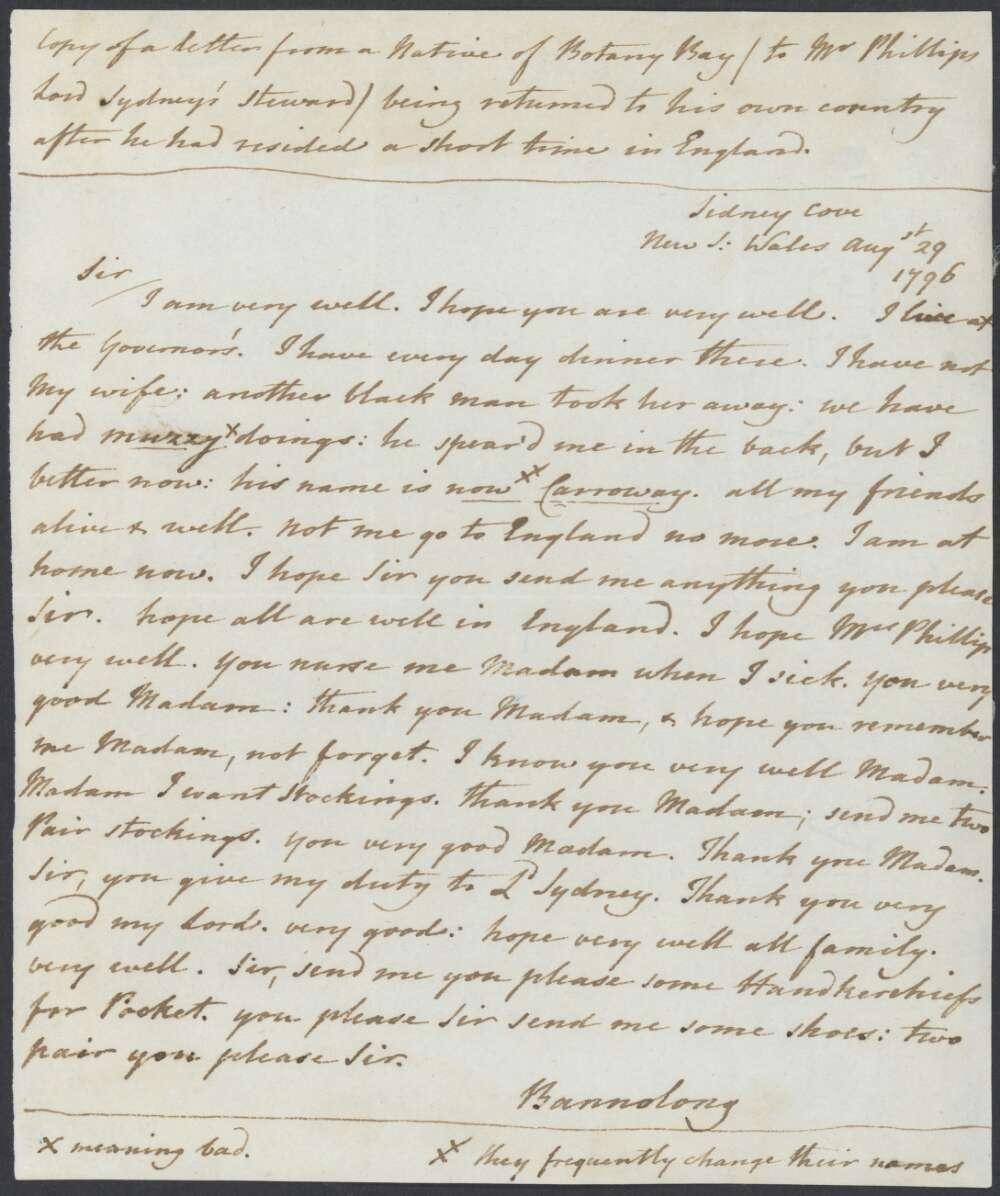 Copy of a letter from a Native of Botany Bay (to Mr Phillips
Lord Sydney's Steward) being returned to his own country
after he had resided a short time in England.
Sidney Cove
New S: Wales Augst 29
1796
Sir
I am very well. I hope you are very well. I live at
the Governor's. I have every day dinner there. I have not
my wife: another black man took her away: we have
had muzzy x doings: he spear'd me in the back, but I
better now: his name is now xx Carroway. all my friends
alive & well. not me go to England no more. I am at
home now. I hope Sir you send me anything you please
Sir. hope all are well in England. I hope Mrs Phillip
very well. you nurse me Madam when I sick. you very
good Madam: thank you Madam, & hope you remember
me Madam, not forget. I know you very well Madam.
Madam I want stockings. thank you Madam; send me two
Pair stockings. you very good Madam. Thank you Madam.
Sir, you give my duty to Ld Sydney. Thank you very
good my Lord. very good: hope very well all family.
very well. Sir, send me you please some Handkerchiefs
for Pocket. you please Sir send me some shoes: two
pair you please Sir.
Bannolong
x meaning bad.
xx they frequently change their names